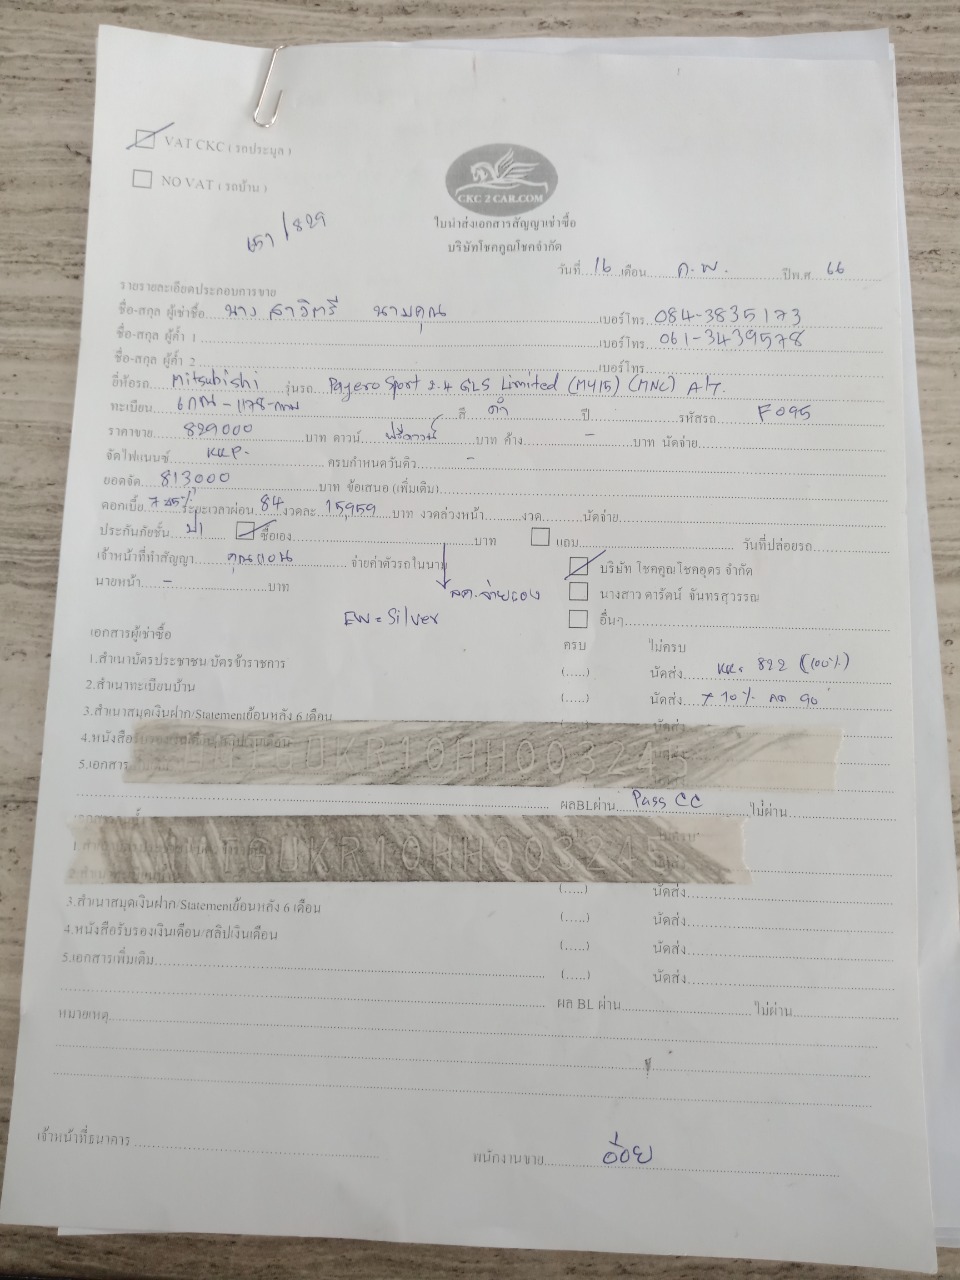 VAT CKC ( รถประมูล )
NO VAT ( รถบ้าน )
CKC 2 CAR.COM
ใบนำส่งเอกสารสัญญาเช่าซื้อ
/829
บริษัทโชคคูณโชคจำกัด
วันที่ 16 เดือน ก.พ. ปีพ.ศ. 66
รายรายละเอียดประกอบการขาย
ชื่อ-สกุล ผู้เช่าซื้อ นาง สาวิตรี นามคุณ เบอร์โทร 084-3835173
ชื่อ-สกุล ผู้ค้ำ 1 เบอร์โทร 061-3439578
ชื่อ-สกุล ผู้ค้ำ 2 เบอร์โทร
ยี่ห้อรถ Mitsubishi รุ่นรถ Pajero Sport 2.4 GLS Limited (MY15) (MNC) A/T.
ทะเบียน 6กณ-1178-กทม สี ดำ ปี รหัสรถ F095
ราคาขาย 829000 บาท ดาวน์ ฟรีดาวน์ บาท ค้าง - บาท นัดจ่าย
จัดไฟแนนซ์ KKP. ครบกำหนดวันคิว -
ยอดจัด 813,000 บาท ข้อเสนอ (เพิ่มเติม)
ดอกเบี้ย ระยะเวลาผ่อน 84 งวดละ 15,959 บาท งวดล่วงหน้า งวด นัดจ่าย
ประกันภัยชั้น ป1 ซื้อเอง บาท แถม วันที่ปล่อยรถ
เจ้าหน้าที่ทำสัญญา จ่ายค่าตัวรถในนาม บริษัท โชคคูณโชคอุดร จำกัด
นายหน้า - บาท ลค.จ่ายเอง นางสาว ดารัตน์ จันทรสุวรรณ
EW = Silver อื่นๆ
เอกสารผู้เช่าซื้อ ครบ ไม่ครบ
1.สำเนาบัตรประชาชน/บัตรข้าราชการ (.....) นัดส่ง 822 (100%)
2.สำเนาทะเบียนบ้าน (.....) นัดส่ง 10% 90
3.สำเนาสมุดเงินฝาก/Statementย้อนหลัง 6 เดือน นัดส่ง
4.หนังสือรับรองเงินเดือน/สลิปเงินเดือน นัดส่ง
GUKR10HH003245
5.เอกสาร
ผลBLผ่าน Pass CC ไม่ผ่าน
ไม่ครบ
TGUKR10HH003245
(.....) นัดส่ง
3.สำเนาสมุดเงินฝาก/Statementย้อนหลัง 6 เดือน (.....) นัดส่ง
4.หนังสือรับรองเงินเดือน/สลิปเงินเดือน (.....) นัดส่ง
5.เอกสารเพิ่มเติม (.....) นัดส่ง
ผล BL ผ่าน ไม่ผ่าน
หมายเหตุ
เจ้าหน้าที่ธนาคาร
พนักงานขาย อ๋อย